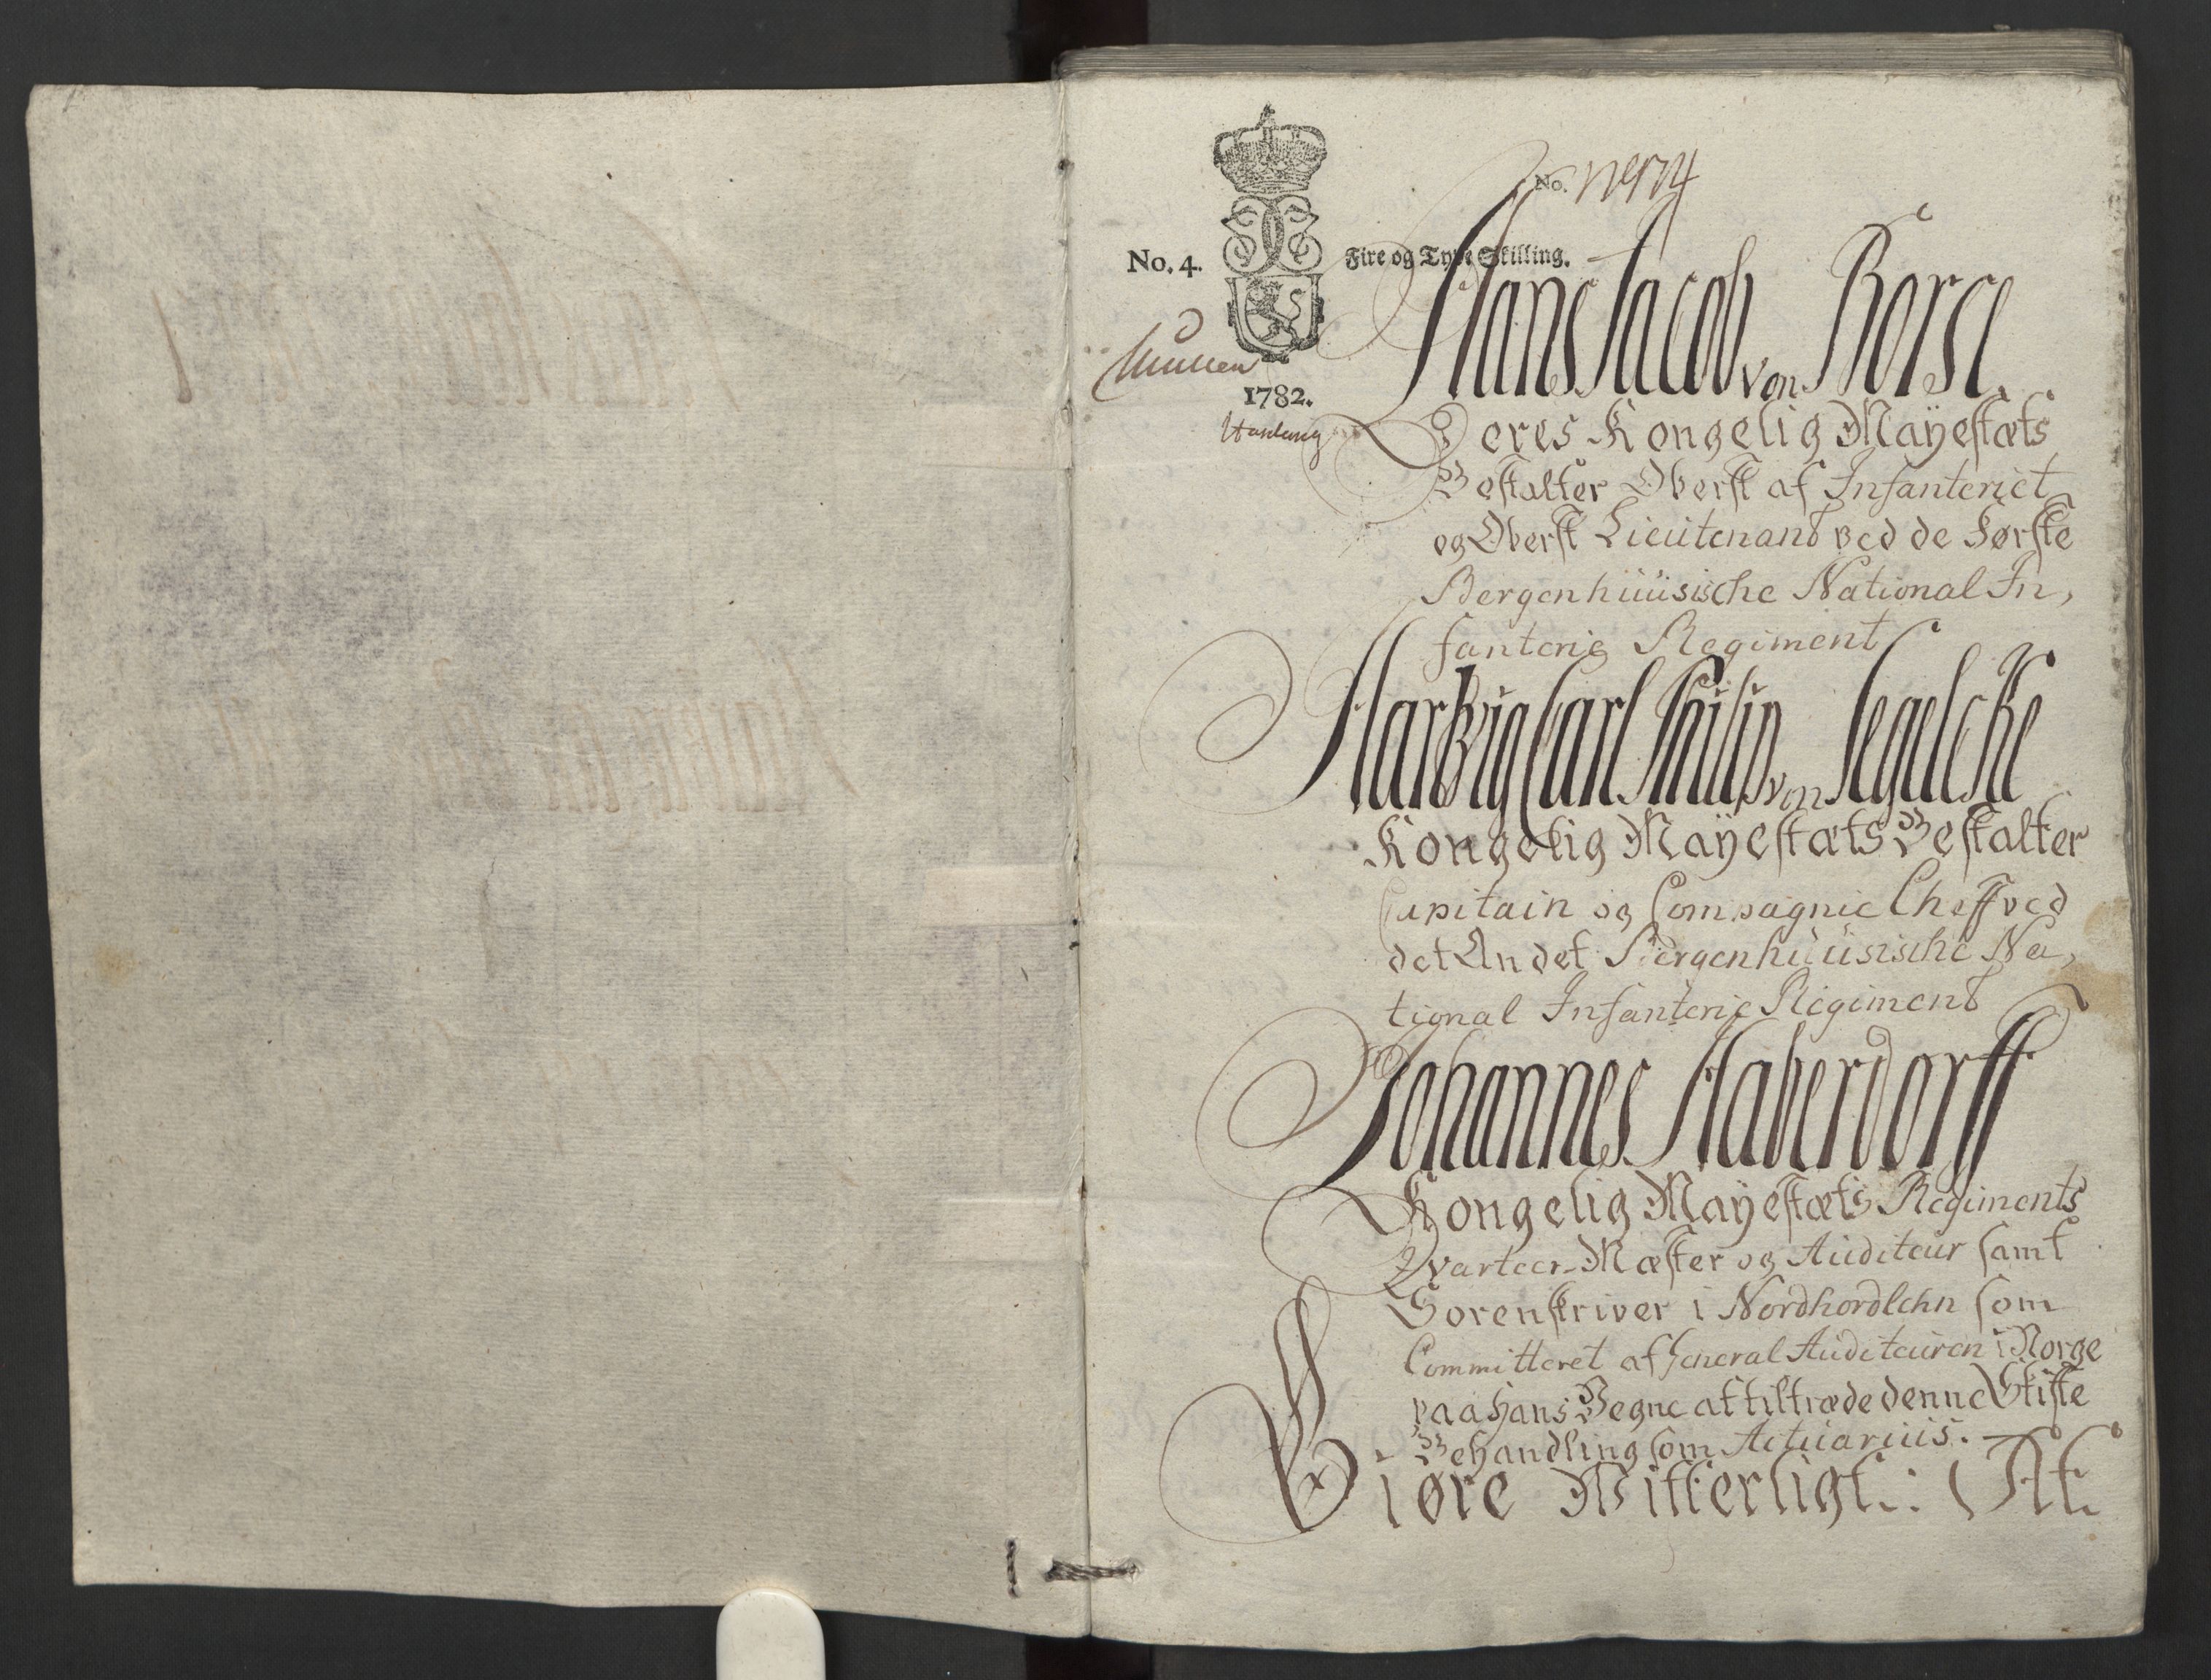 No.
No. 4.
Fire og Tyve Skilling.
1782.
Hans Jacob von Borse.
Deres Kongelig Mayestæts
Bestalter Oberst af Infanteriet
og Oberst Lieutenant ved de Første
Bergenhuusische National In,
fanterie Regiment
Hartvig Carl Philip von Segelcke
Kongelig Mayestæts Bestalter
Capitain og Compagnie Cheff ved
det Andet Bergenhuusische Na,
tional Infanterie Regiment
Johannes Haberdorff
Kongelig Mayestæts Regiments
Qvarteer-Mæster og Auditeur samt
Sorenskriver i Nordhordlehn som
Committeret af General Auditeuren i Norge
paa hans Vegne at tiltræde denne Skifte
Behandling som Actuarius.
Giøre Witterligt: At